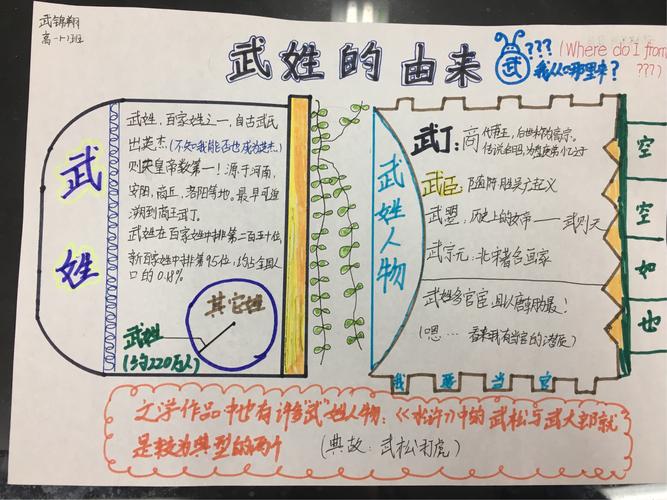 武锦翔
高一13班
武姓的由来
武
???
(Where do I from
???)
我从哪里来?
武姓
武姓,百家姓之一,自古武氏
出英杰(不知我能否也成为英杰)
则天皇帝数第一!源于河南,
安阳,商丘,洛阳等地。最早可追
溯到商王武丁。
武姓在百家姓中排第二百五十位,
新百家姓中排第95位,约占全国人
口的0.18%。
其它姓
武姓
(约220万人)
武姓人物
武丁:商代帝王,后世称为高宗。
武臣
陈胜吴广起义
武曌,历史上的女帝——武则天
武宗元:北宋著名画家
武姓多官宦,且以唐朝为最!
(嗯…看来我有当官的潜质)
我要当官
空空如也
文学作品中也有许多"武"姓人物:《水浒》中的武松与武大郎就
是较为典型的两个
(典故:武松打虎)